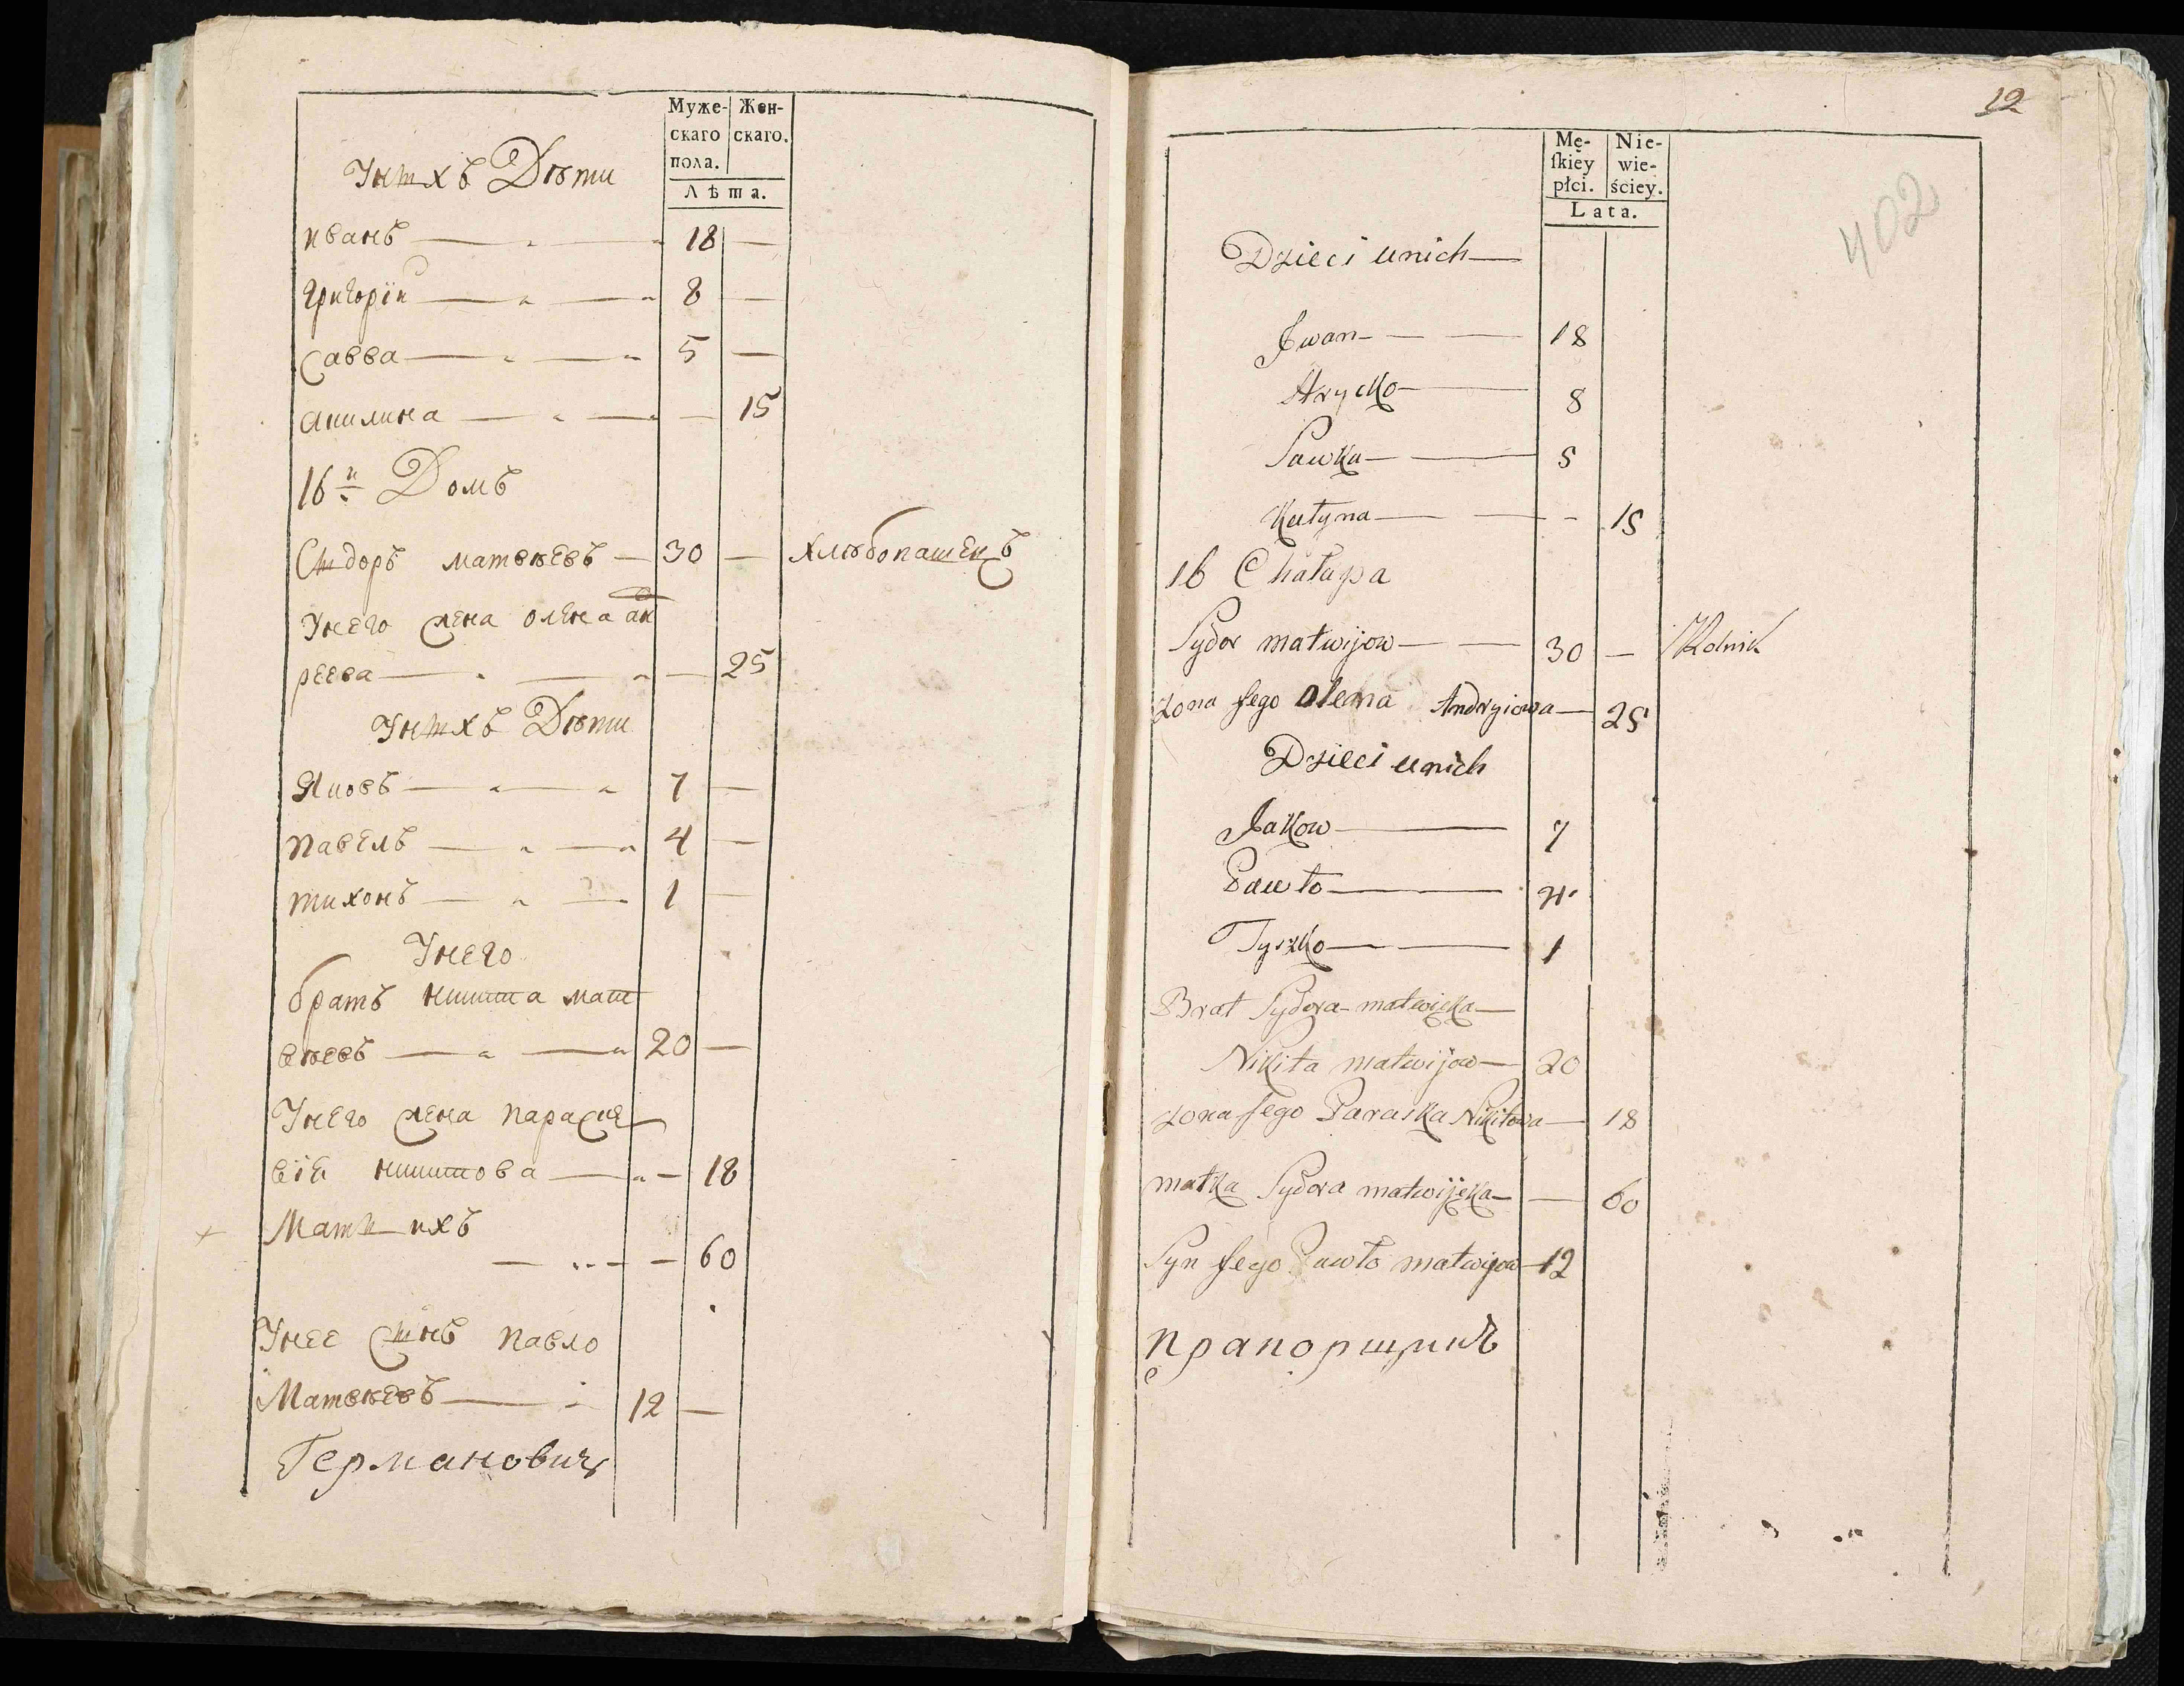 Муже-
скаго
пола.
Жен-
скаго.
Лѣта.
Унихъ Дѣти
иванъ 18 —
григорїи 8 —
савва 5 —
акилина — 15
16й Домъ
Сидоръ матвѣевъ — 30 — хлѣбопашецъ
Унего жена олена ан
реева — 25
Унихъ Дѣти
Яковъ 7 —
павелъ 4 —
тихонъ 1 —
Унего
братъ никита мат
вѣевъ 20 —
Унего жена параске
вїя никитова — 18
Мать ихъ
— 60
Унее синъ павло
Матвѣевъ 12 —
Германович
12
402
Mę-
ſkiey
płci.
Nie-
wie-
ściey.
Lata.
Dzieci unich —
Jwan — 18
Hrycko — 8
Sawka — 5
Kułyna — 15
16 Chałupa
Sydor matwijow — 30 — Rolnik
zona jego Olena Andryiowa — 25
Dzieci unich
Jakow — 7
Pawło — 4
Tyszko — 1
Brat Sydora matwijeka —
Nikita matwijow — 20
zona jego Paraska Nikitowa — 18
matka Sydora matwijeka — 60
Syn jego Pawło matwijow — 12
прапорщикъ